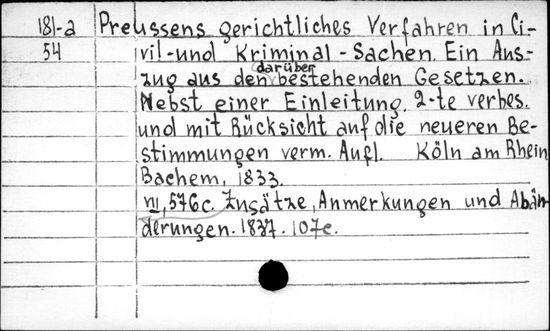 181-a Preussens gerichtliches Verfahren in Ci-
54 vil-und Kriminal-Sachen. Ein Aus-
zug aus den darüber bestehenden Gesetzen.
Nebst einer Einleitung. 2-te verbes.
und mit Rücksicht auf die neueren Be-
stimmungen verm. Aufl. Köln am Rhein
Bachem, 1833.
VII, 576 c. Zusätze, Anmerkungen und Abän-
derungen. 1837. 107c.